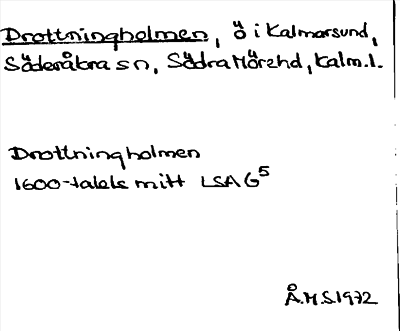 Drottningholmen, ö i Kalmarsund,
Söderåkra sn, Södra Möre hd, Kalm. l.
Drottningholmen
1600-talets mitt LSA G5
Å.H.S. 1972